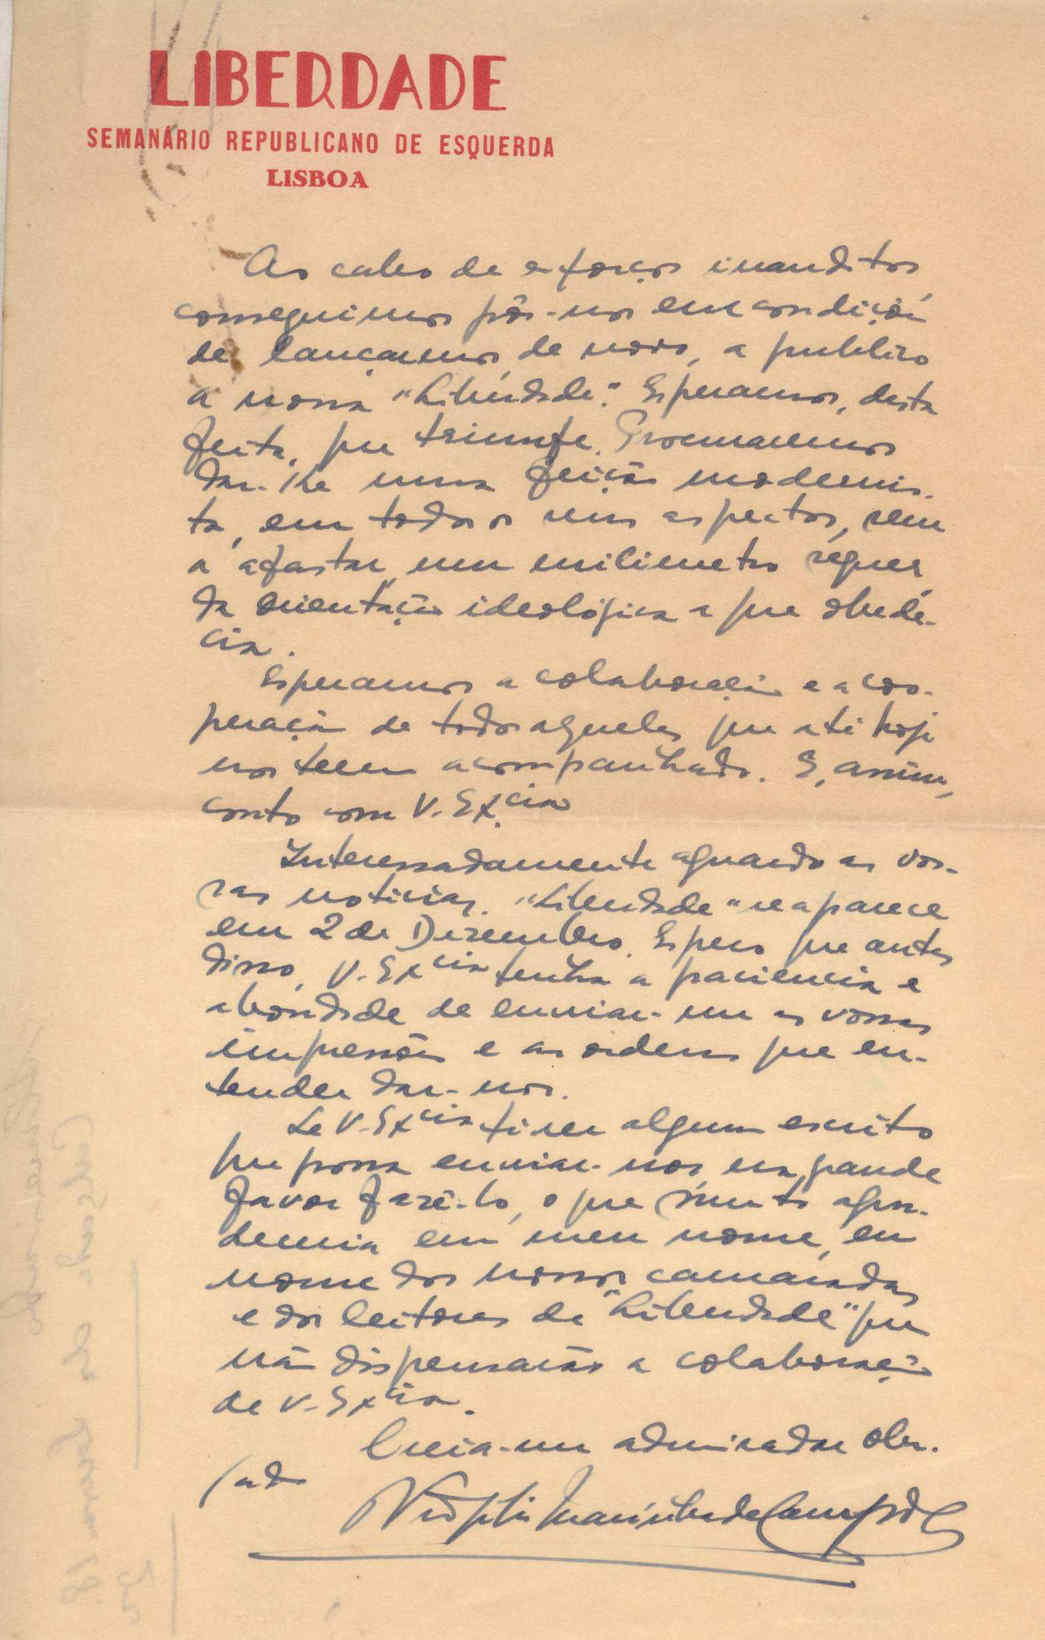 LIBERDADE
SEMANÁRIO REPUBLICANO DE ESQUERDA
LISBOA
Ao cabo de esforços inauditos
conseguimos pôr-nos em condições
de lançarmos, de novo, a publico
a nossa "Liberdade". Esperamos, desta
feita, que triunfe. Procuraremos
dar-lhe uma feição modernis-
ta, em todos os seus aspectos, sem
a afastar um milimetro sequer
da orientação ideológica a que obede-
cia.
Esperamos a colaboração e a coo-
peração de todos aqueles que até hoje
nos teem acompanhado. E, assim,
conto com V. Ex.cia
Interessadamente aguardo as vos-
sas noticias. "Liberdade" reaparece
em 2 de Dezembro. Espero que antes
disso, V. Excia tenha a paciencia e
a bondade de enviar-me as vossas
impressões e as ordens que en-
tender dar-nos.
Se V. Excia tiver algum escrito
que possa enviar-nos, era grande
favor fazê-lo, o que muito agra-
deceria em meu nome, em
nome dos nossos camaradas
e dos leitores de "Liberdade" que
não dispensarão a colaboração
de V. Excia.
Creia-me admirador obr.